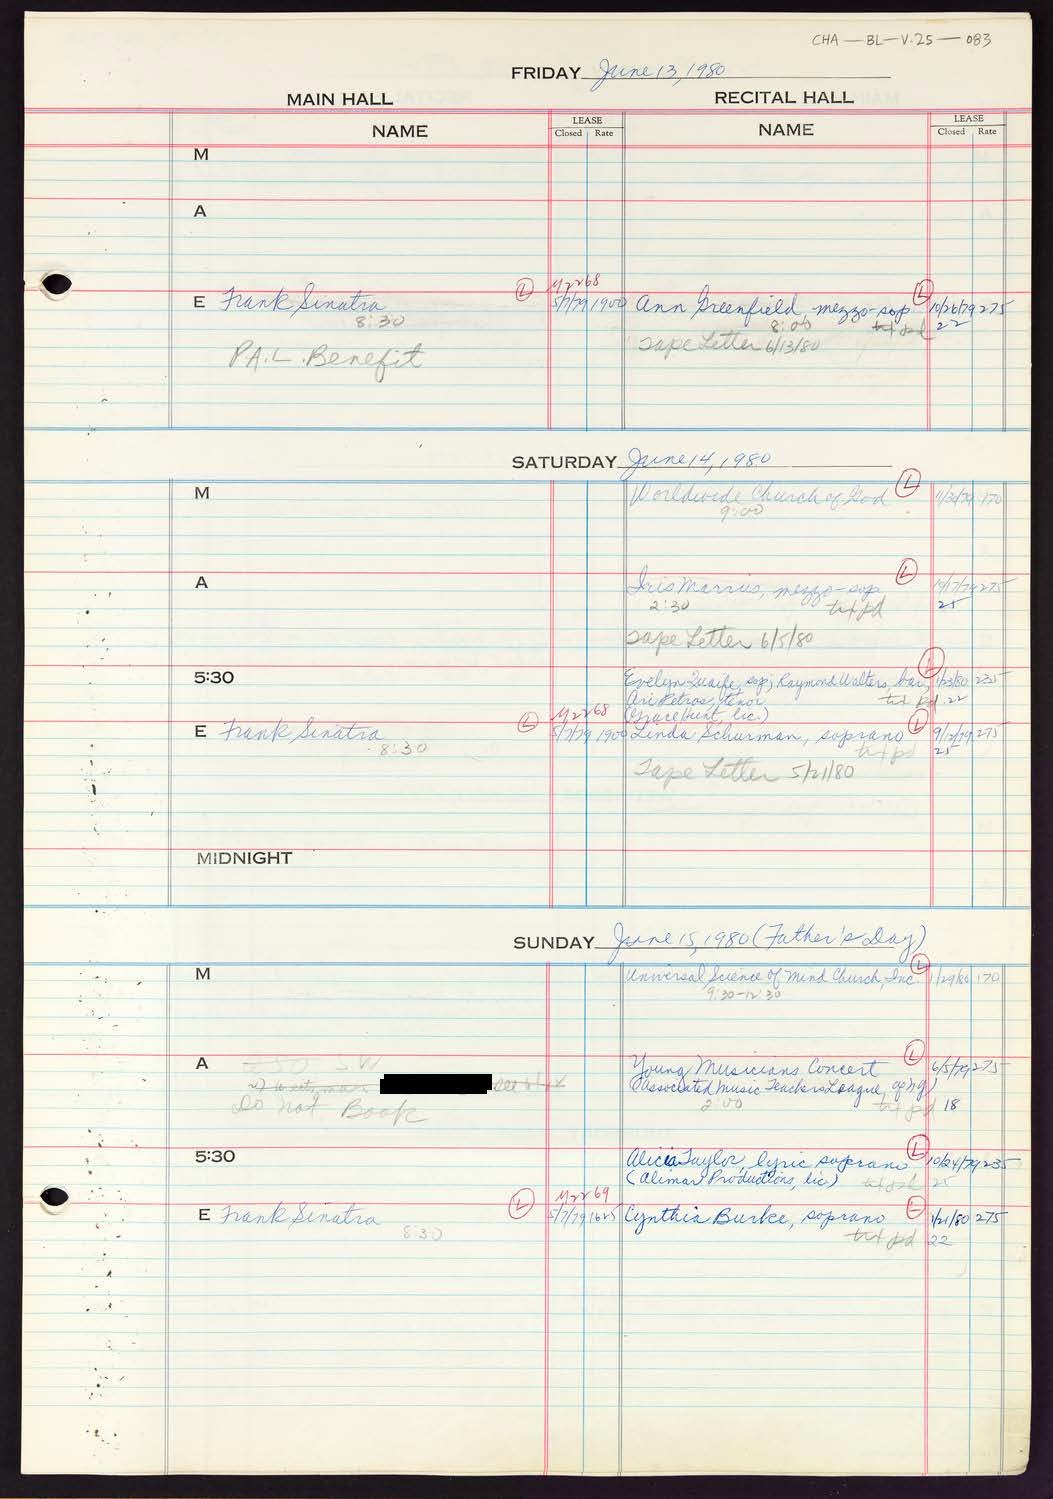 CHA — BL — V.25 — 083
FRIDAY June 13, 1980
MAIN HALL
RECITAL HALL
NAME
LEASE
Closed Rate
NAME
LEASE
Closed Rate
M
A
E Frank Sinatra L 5/7/79 1900
8:30
P.A.L. Benefit
Ann Greenfield, mezzo-sop L 10/26/79 275
8:00 txt pd 22
Tape Letter 6/13/80
SATURDAY June 14, 1980
M
Worldwide Church of God L 170
9:00
A
Iris mezzo-sop L 275
2:30 txt pd 25
Tape Letter 6/5/80
5:30
Evelyn Quaife, sop; Raymond Walters, bar; L 1/23/80 235
Ari Petros, tenor txt pd 22
(Grace Hunt, lic.)
E Frank Sinatra L 5/7/79 1900
8:30
Linda Schurman, soprano L 9/12/79 275
txt pd 25
Tape Letter 5/21/80
MIDNIGHT
SUNDAY June 15, 1980 (Father's Day)
M
Universal Science of Mind Church, Inc. L 1/29/80 170
9:30-12:30
A
Do Not Book
Young Musicians Concert L 6/5/79 275
(Associated Music Teachers League, of NY)
2:00 txt pd 18
5:30
Alicia Taylor, lyric soprano L 10/24/79 235
(Alimar Productions, lic) 25
E Frank Sinatra L 5/7/79 1625
8:30
Cynthia Burke, soprano L 1/21/80 275
txt pd 22